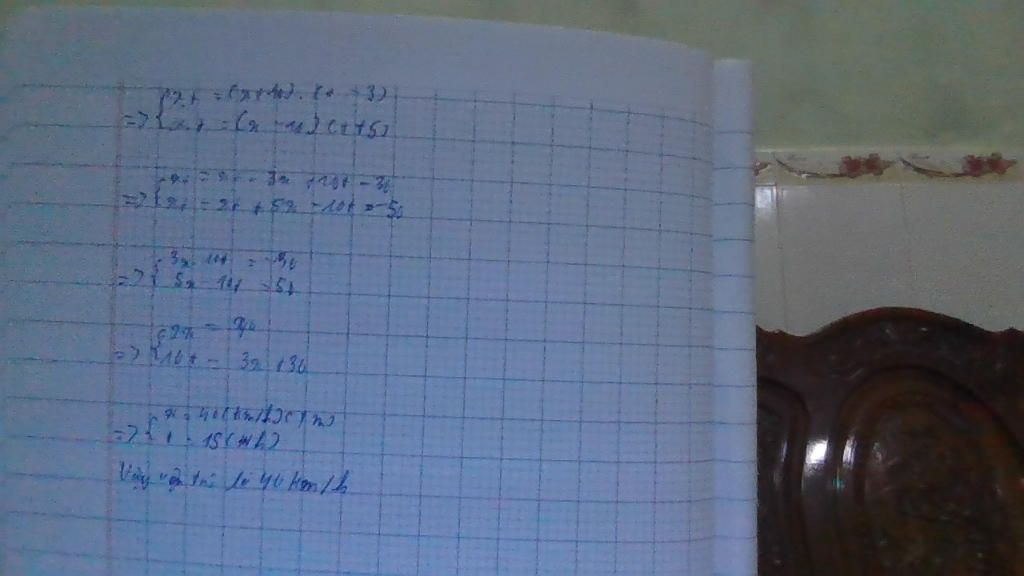 { x.t = (x+10).(t - 3)
=> { x.t = (x - 10)(t+5)
xt = xt - 3x + 10t - 30
=> { xt = xt + 5x - 10t - 50
3x - 10t = -30
=> { 5x - 10t = 50
{ 2x = 80
=> { 10t = 3x + 30
x = 40 (km/h) (tm)
=> { t = 15 (h)
Vậy vận tốc là 40 km/h